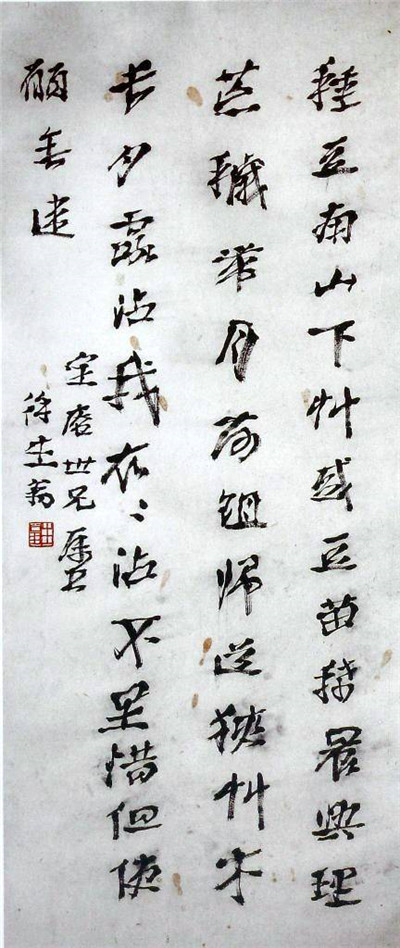 種豆南山下艸盛豆苗稀晨興理
荒穢帶月荷鉏歸道狹艸木
長夕露沾我衣〻沾不足惜但使
願無違
世兄屬正
徐生翁